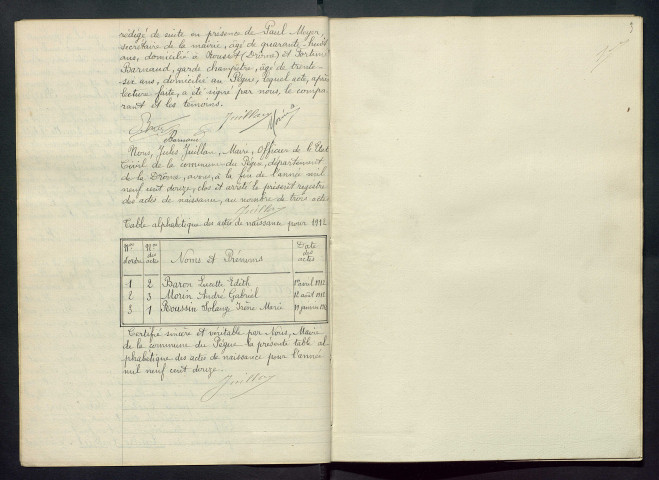 rédigé de suite en présence de Paul Meyer
secrétaire de la mairie, âgé de quarante-huit
ans, domicilié à Rousset (Drôme) et Fortuné
Barnaud, garde champêtre, âgé de trente-
six ans, domicilié au Pègue, lequel acte, après
lecture faite, a été signé par nous, le compa
rant et les témoins.
Juillan
Barnaud
Nous, Jules Juillan, Maire, Officier de l'Etat
Civil de la commune du Pègue, département
de la Drôme, avons, à la fin de l'année mil
neuf cent douze, clos et arrêté le présent registre
des actes de naissance, au nombre de trois actes
Juillan
Table alphabétique des actes de naissance pour 1912
Nos d'ordre Nos des actes Noms et Prénoms Date des actes
1 2 Baron Lucette Edith 1er avril 1912
2 3 Morin André Gabriel 12 août 1912
3 1 Roussin Solange Irène Marie 19 janvier 1912
Certifié sincère et véritable par Nous, Maire
de la commune du Pègue la présente table al
phabétique des actes de naissance pour l'année
mil neuf cent douze.
Juillan
3